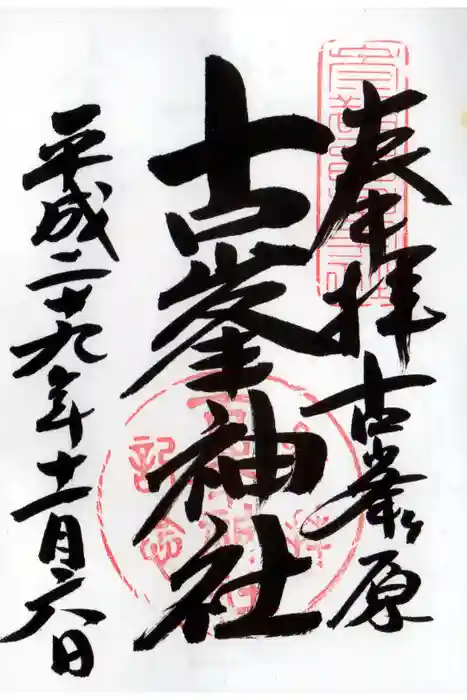 奉拝 古峯ヶ原
古峯神社
平成二十九年十一月六日